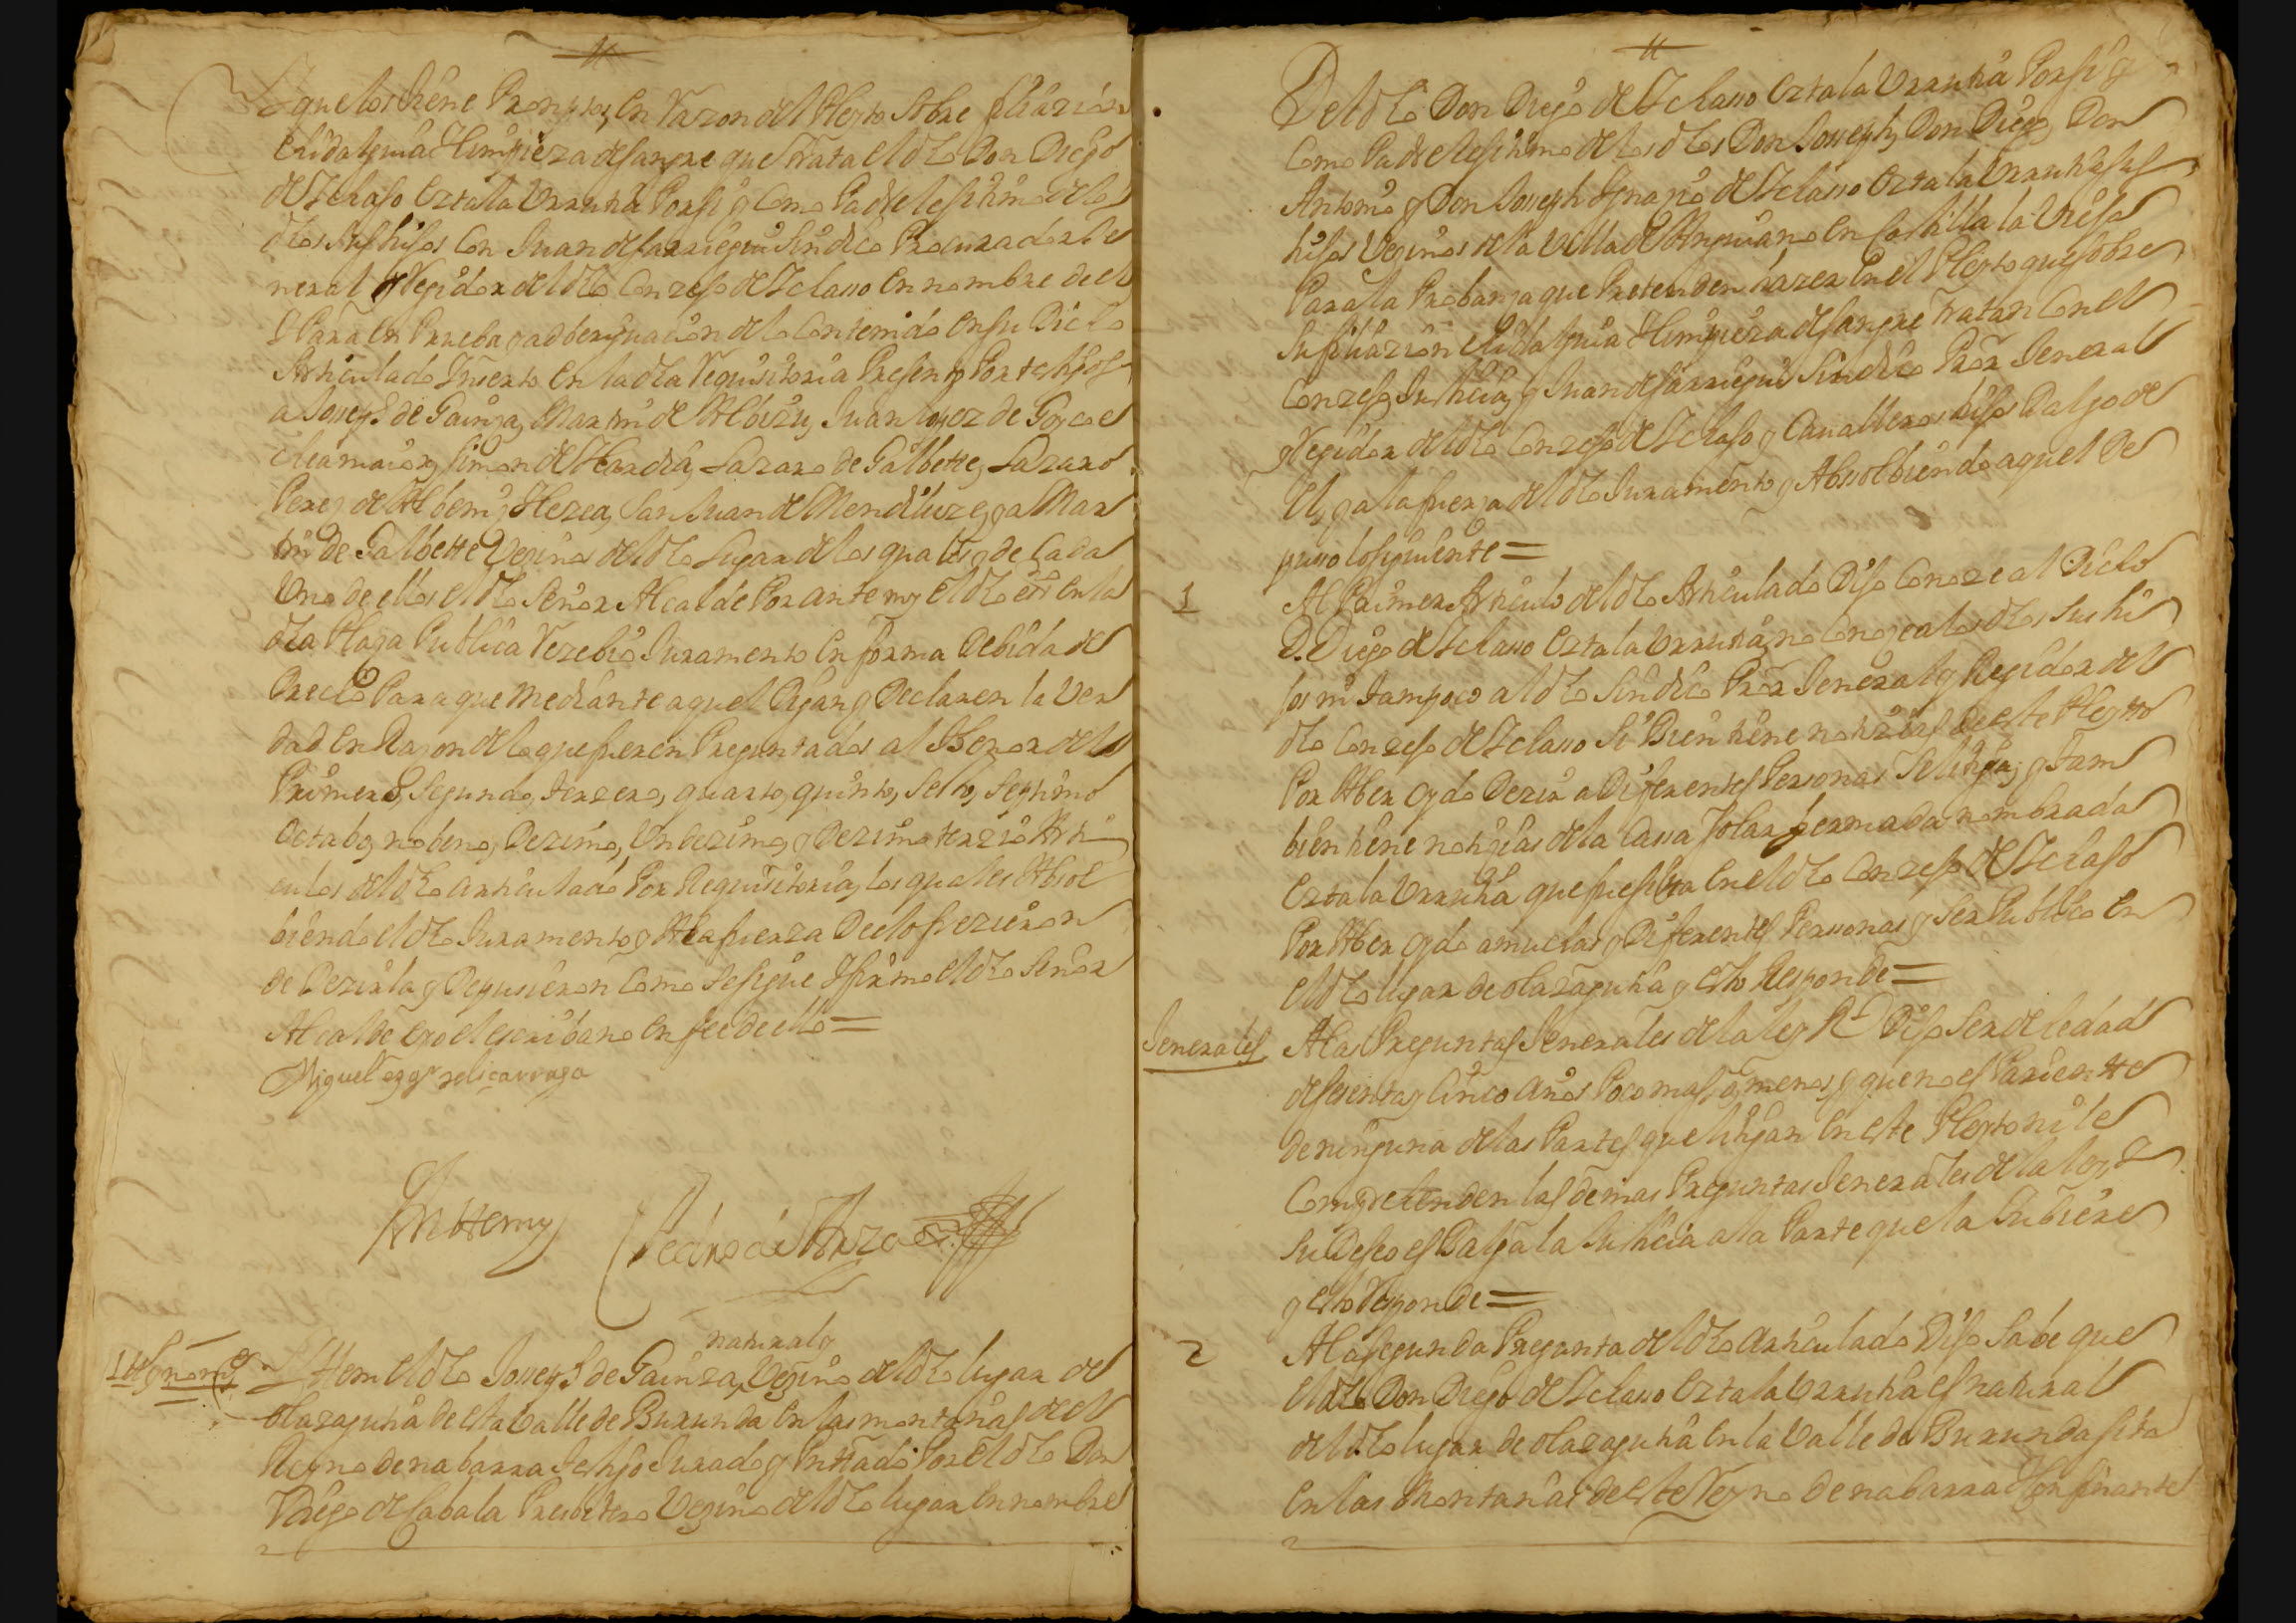 que los tiene Promptos, en Razon del Pleyto Sobre filiazion
e hidalguia, Y limpieza de sangre que trata el dho Don Diego
de Yclasso Oztala Urrutia Por si y Como Padre lexitimo de los
dhos sus hijos Con Juan de sarasegui Sindico Procurador Je
neral y Regidor del dho Conzejo de Yclasso en nombre de el
Y Para en Prueba y adberiguacion de lo Contenido en su Dicho
Articulado Ynserto en la dha Requisitoria Presento Por testigos
a Joseph de Gainza, Martin de Albizu, Juan Lopez de Goycoe
chea maior, Simon de Heredia, Lazaro de Galbette, Lazaro
Perez de Albeniz, San Juan de Mendiluze, y a Mar
tin de Galbette Vezinos del dho Lugar de los quales y de Cada
Uno de ellos el dho Señor Alcalde Por ante my el dho essno en la
dha Plaza Publica Rezebio Juramento en forma Debida de
Drecho Para que mediante aquel Digan y Declaren la Ver
dad en Razon de lo que fueren Preguntados al thenor de los
Primero, Segundo, terzero, quarto, quinto, Sesto, Septimo
Octabo, nobeno, Dezimo, Undezimo, y Dezimo terzio Arti
culos del dho articulado Por Requisitoria, los quales Absol
biendo el dho Juramento y A la fuerza De el ofrezieron
de Dezirla y Depusieron Como Se sigue Y firmo el dho Señor
Alcalde e yo el escribano en fee de ello =
Miguel
Antte my Pedro de Arza
naturaly
1 testigo
Ytten el dho Joseph de Gainza, Vezino del dho lugar de
olazagutia de esta Valle de Burunda en las montañas de el
Reyno de nabarra testigo Jurado y Presentado Por el dho Don
Diego de Zabala Presbitero Vezino del dho lugar en nombre
Del dho Don Diego de Yclasso Oztala Urrutia Por si y
Como Padre lexitimo de los dhos Don Joseph, Don Diego, Don
Antonio y Don Joseph Ygnazio de Yclasso Oztala Urrutia sus
hijos Vezinos de la Villa de Anguiano en Castilla la Vieja
Para la Probanza que Pretenden hazer en el Pleyto que sobre
Su filiazion e hidalguia Y limpieza de sangre tratan Con el
Conzejo, Justicia, y Juan de sarasegui Sindico Pror Jeneral
y Regidor del dho Conzejo de Yclasso y Caualleros hijos Dalgo de
el, y a la fuerza del dho Juramento y Absolbiendo aquel De
puso lo siguiente =
1
Al Primer Articulo del dho Articulado Dijo Conoze al Dicho
D. Diego de Yclasso Oztala Urrutia, no Conoze a los dhos Sus hi
jos ni tampoco al dho Sindico Pror Jeneral y Regidor del
dho Conzejo de Yclasso Si Bien tiene notizias De este Pleyto
Por Aber oydo Dezir a Diferentes Personas Se litiga; y tam
bien tiene notizias de la Cassa Solar y armada nombrada
Oztala Urrutia que se sita en el dho Conzejo de Yclasso
Por Aber oydo a muchas y Diferentes Perssonas y Ser Publico en
el dho lugar de olazagutia y esto Responde =
Jenerales
A las Preguntas Jenerales de la ley Rl Dijo Ser de edad
de Sesenta y Cinco años Poco mas o menos, y que no es Pariente
de ninguna de las Partes que litigan en este Pleyto ni le
Comprehenden las demas Preguntas Jenerales de la ley y
Su Deseo es Balga la Justicia a la Parte que la tubiere
y esto Responde =
2
A la segunda Pregunta del dho articulado Dijo Sabe que
el dho Don Diego de Yclasso Oztala Urrutia es natural
del dho lugar de olazagutia en la Valle de Burunda sita
en las Montañas de este Reyno de nabarra Y Confinante